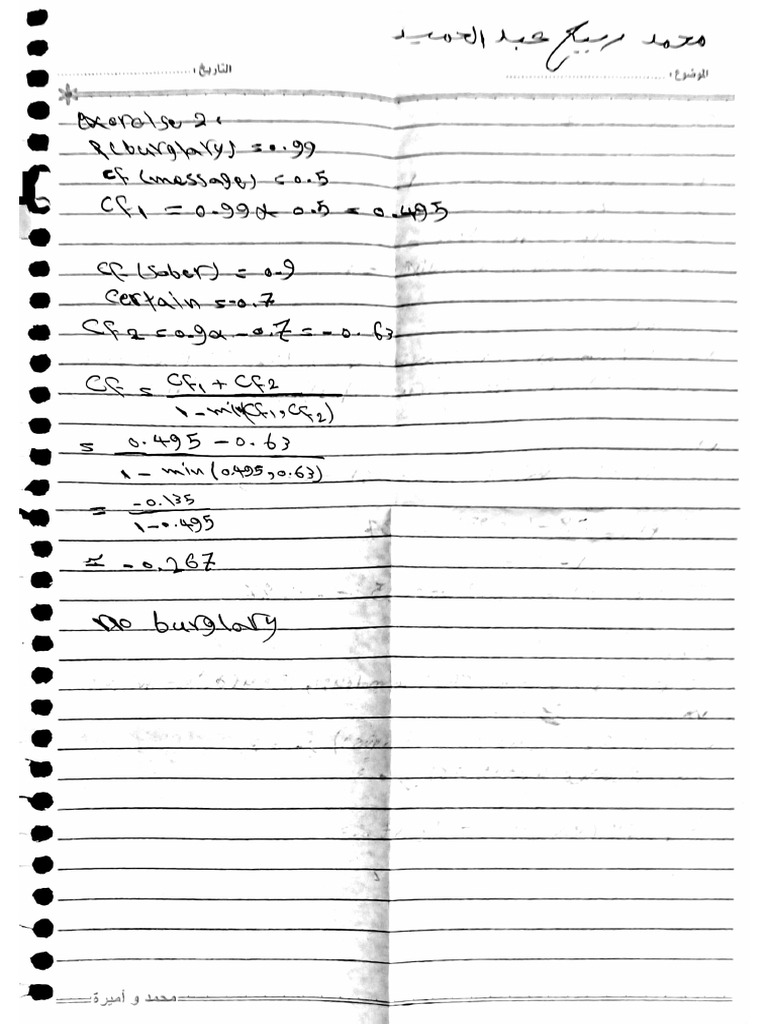 محمد ربيع عبد الحميد
الموضوع : التاريخ :
Exercise 2:
P(burglary) = 0.99
cf(message) = 0.5
CF1 = 0.99 x 0.5 = 0.495
CF(sober) = 0.9
certain = -0.7
CF2 = 0.9 x -0.7 = -0.63
CF = CF1 + CF2 / 1 - min(CF1, CF2)
= 0.495 - 0.63 / 1 - min(0.495, 0.63)
= -0.135 / 1 - 0.495
= -0.267
no burglary
محمد و أميرة